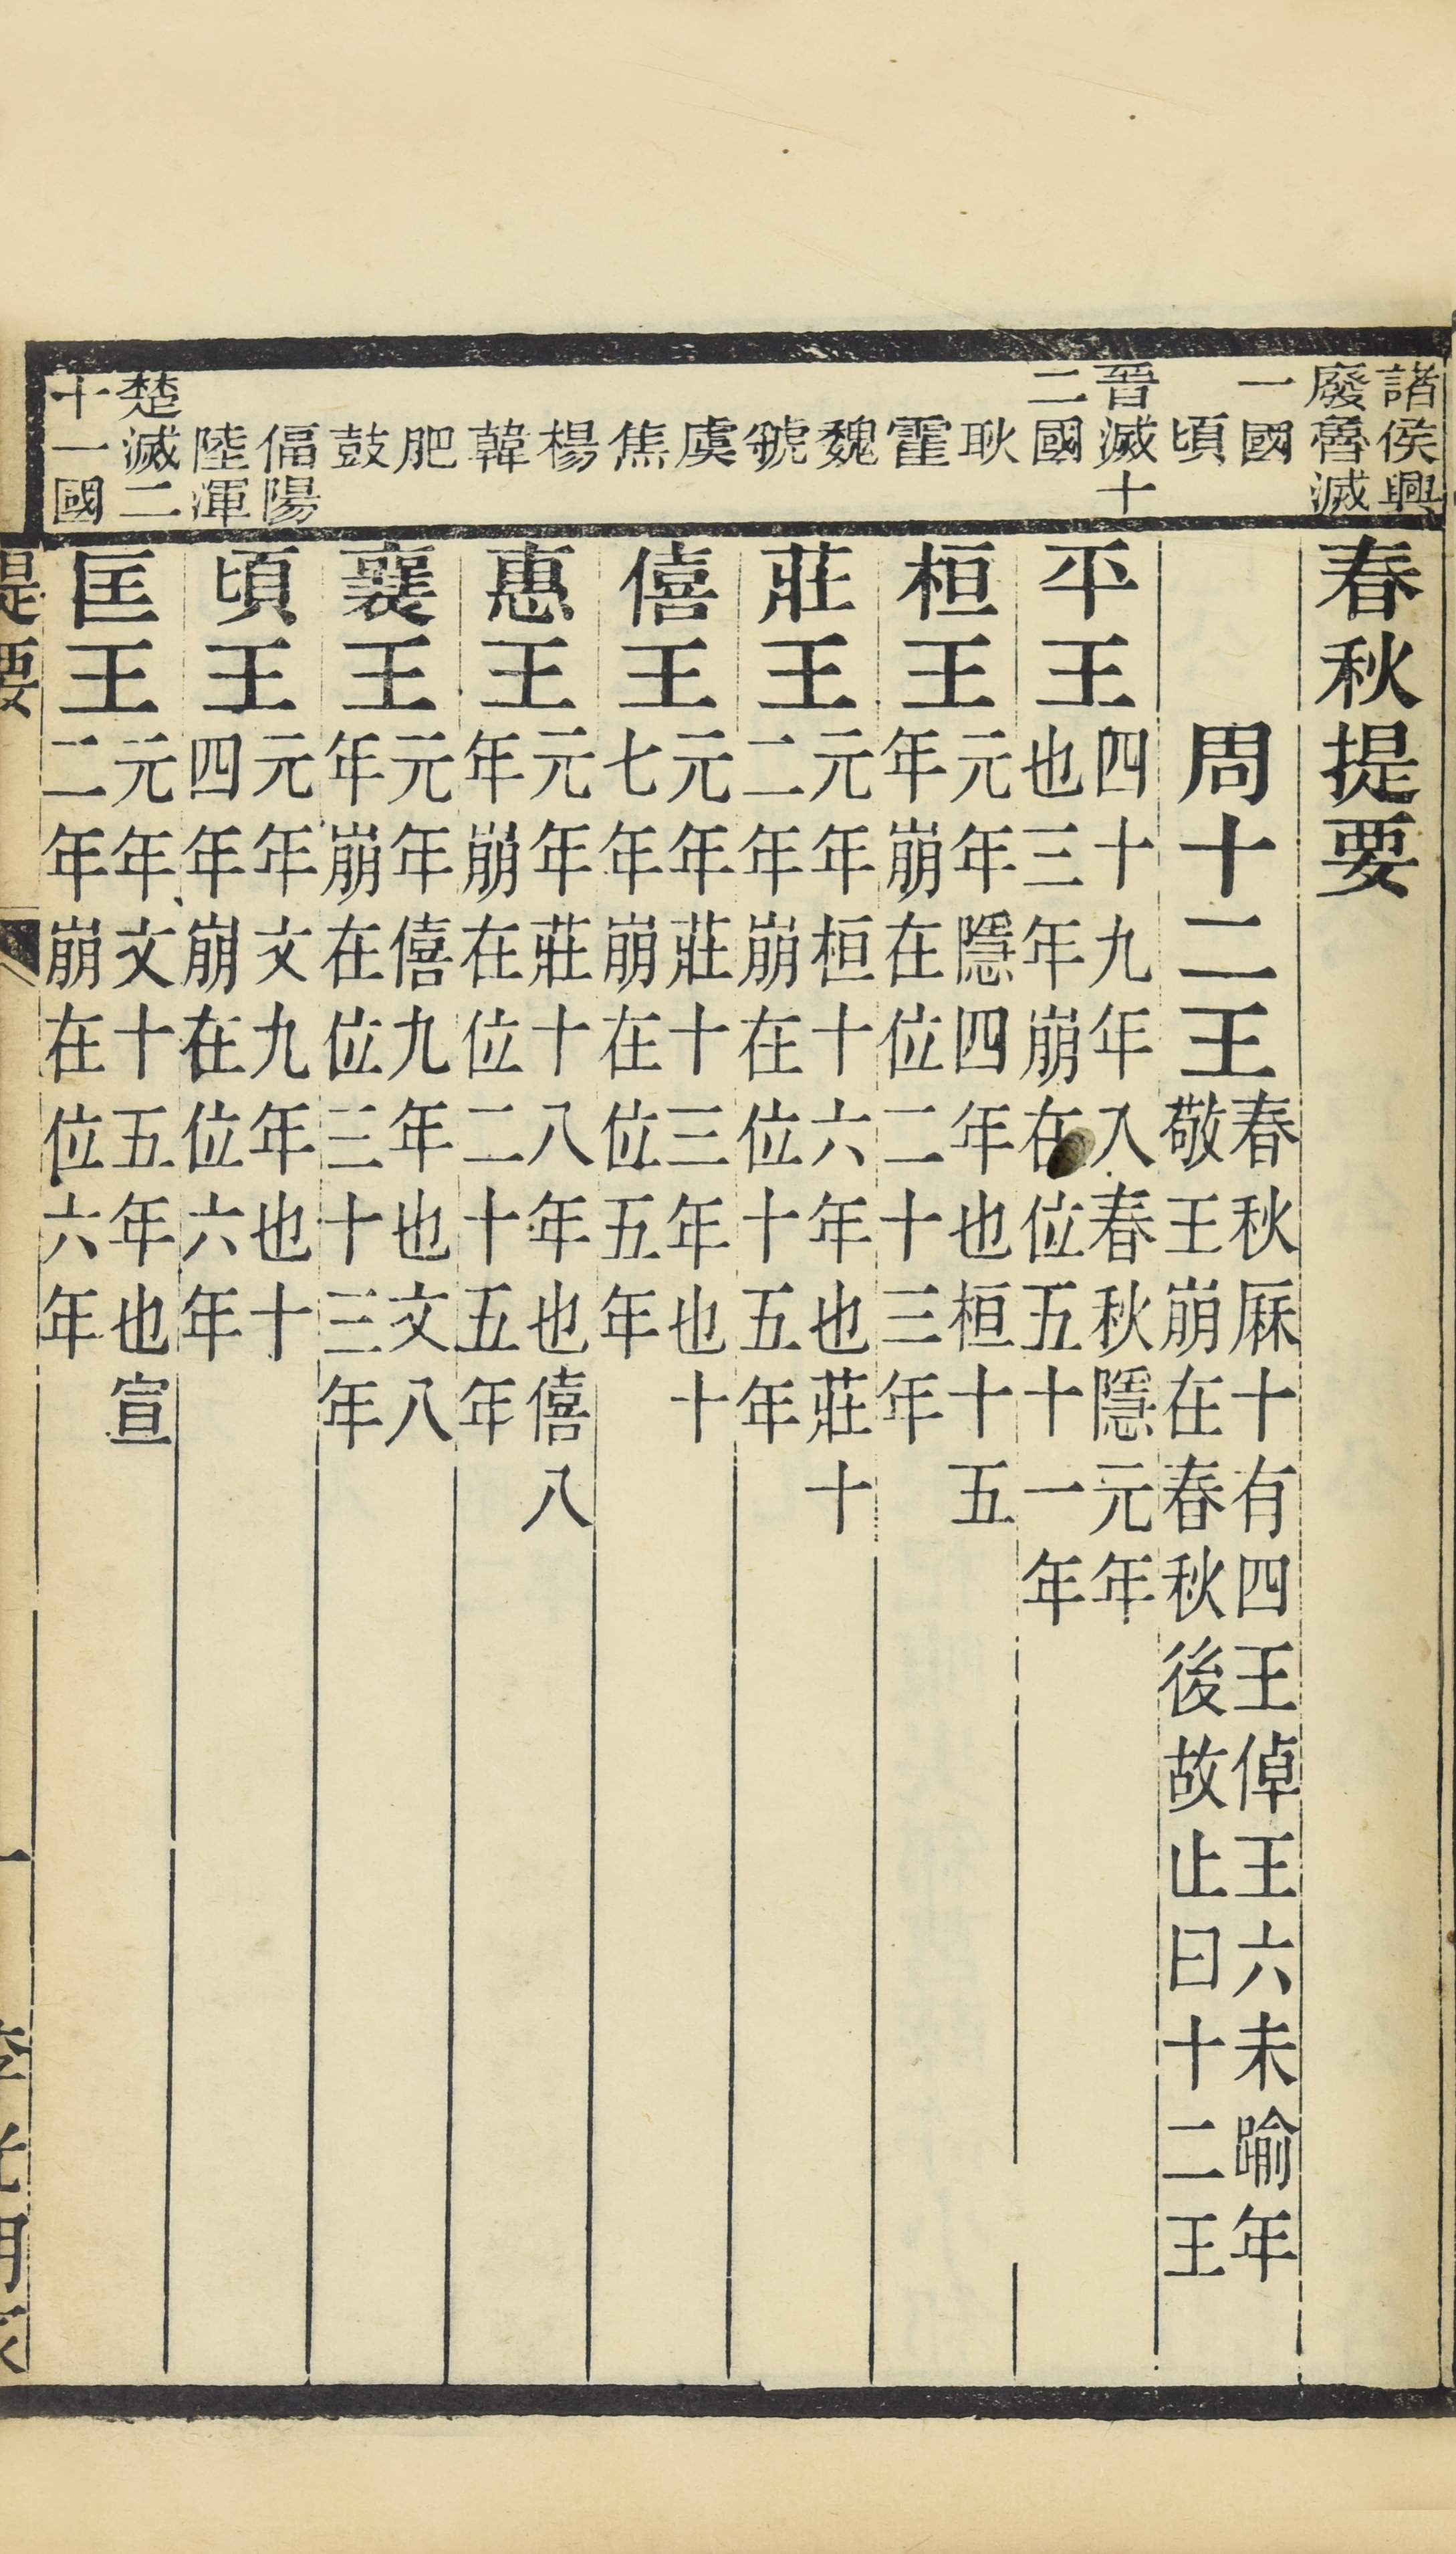 諸侯興
廢魯滅
一國
頃
晉滅十
二國
耿
霍
魏
虢
虞
焦
楊
韓
肥
鼓
偪陽
陸渾
楚滅二
十一國
春秋提要
周十二王
春秋厤十有四王倬王六未踰年
敬王崩在春秋後故止曰十二王
平王
四十九年入春秋隱元年
也三年崩在位五十一年
桓王
元年隱四年也桓十五
年崩在位二十三年
莊王
元年桓十六年也莊十
二年崩在位十五年
僖王
元年莊十三年也十
七年崩在位五年
惠王
元年莊十八年也僖八
年崩在位二十五年
襄王
元年僖九年也文八
年崩在位三十三年
頃王
元年文九年也十
四年崩在位六年
匡王
元年文十五年也宣
二年崩在位六年
提要